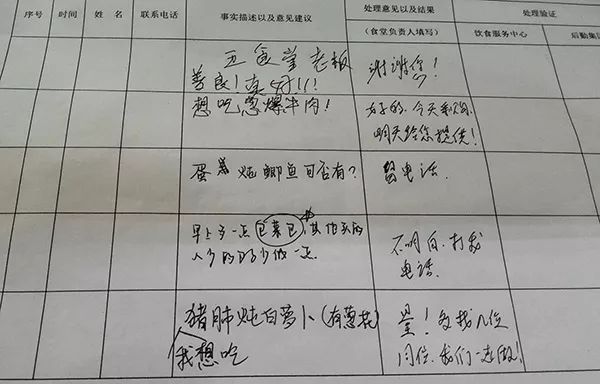 序号 时间 姓名 联系电话 事实描述以及意见建议 处理意见以及结果 处理验证
(食堂负责人填写) 饮食服务中心 后勤集团
五食堂老板
善良！真好!!!
谢谢您！
想吃葱爆牛肉！
好的，今天采购，
明天给您提供！
蛋羹 炖鲫鱼可否有？
留电话。
早上多一点包菜包，其他买的
人少的可少做一点。
不明白，打我
电话。
猪肺炖白萝卜(有葱花)
我想吃
量！多找几位
同伴，我们一起做！